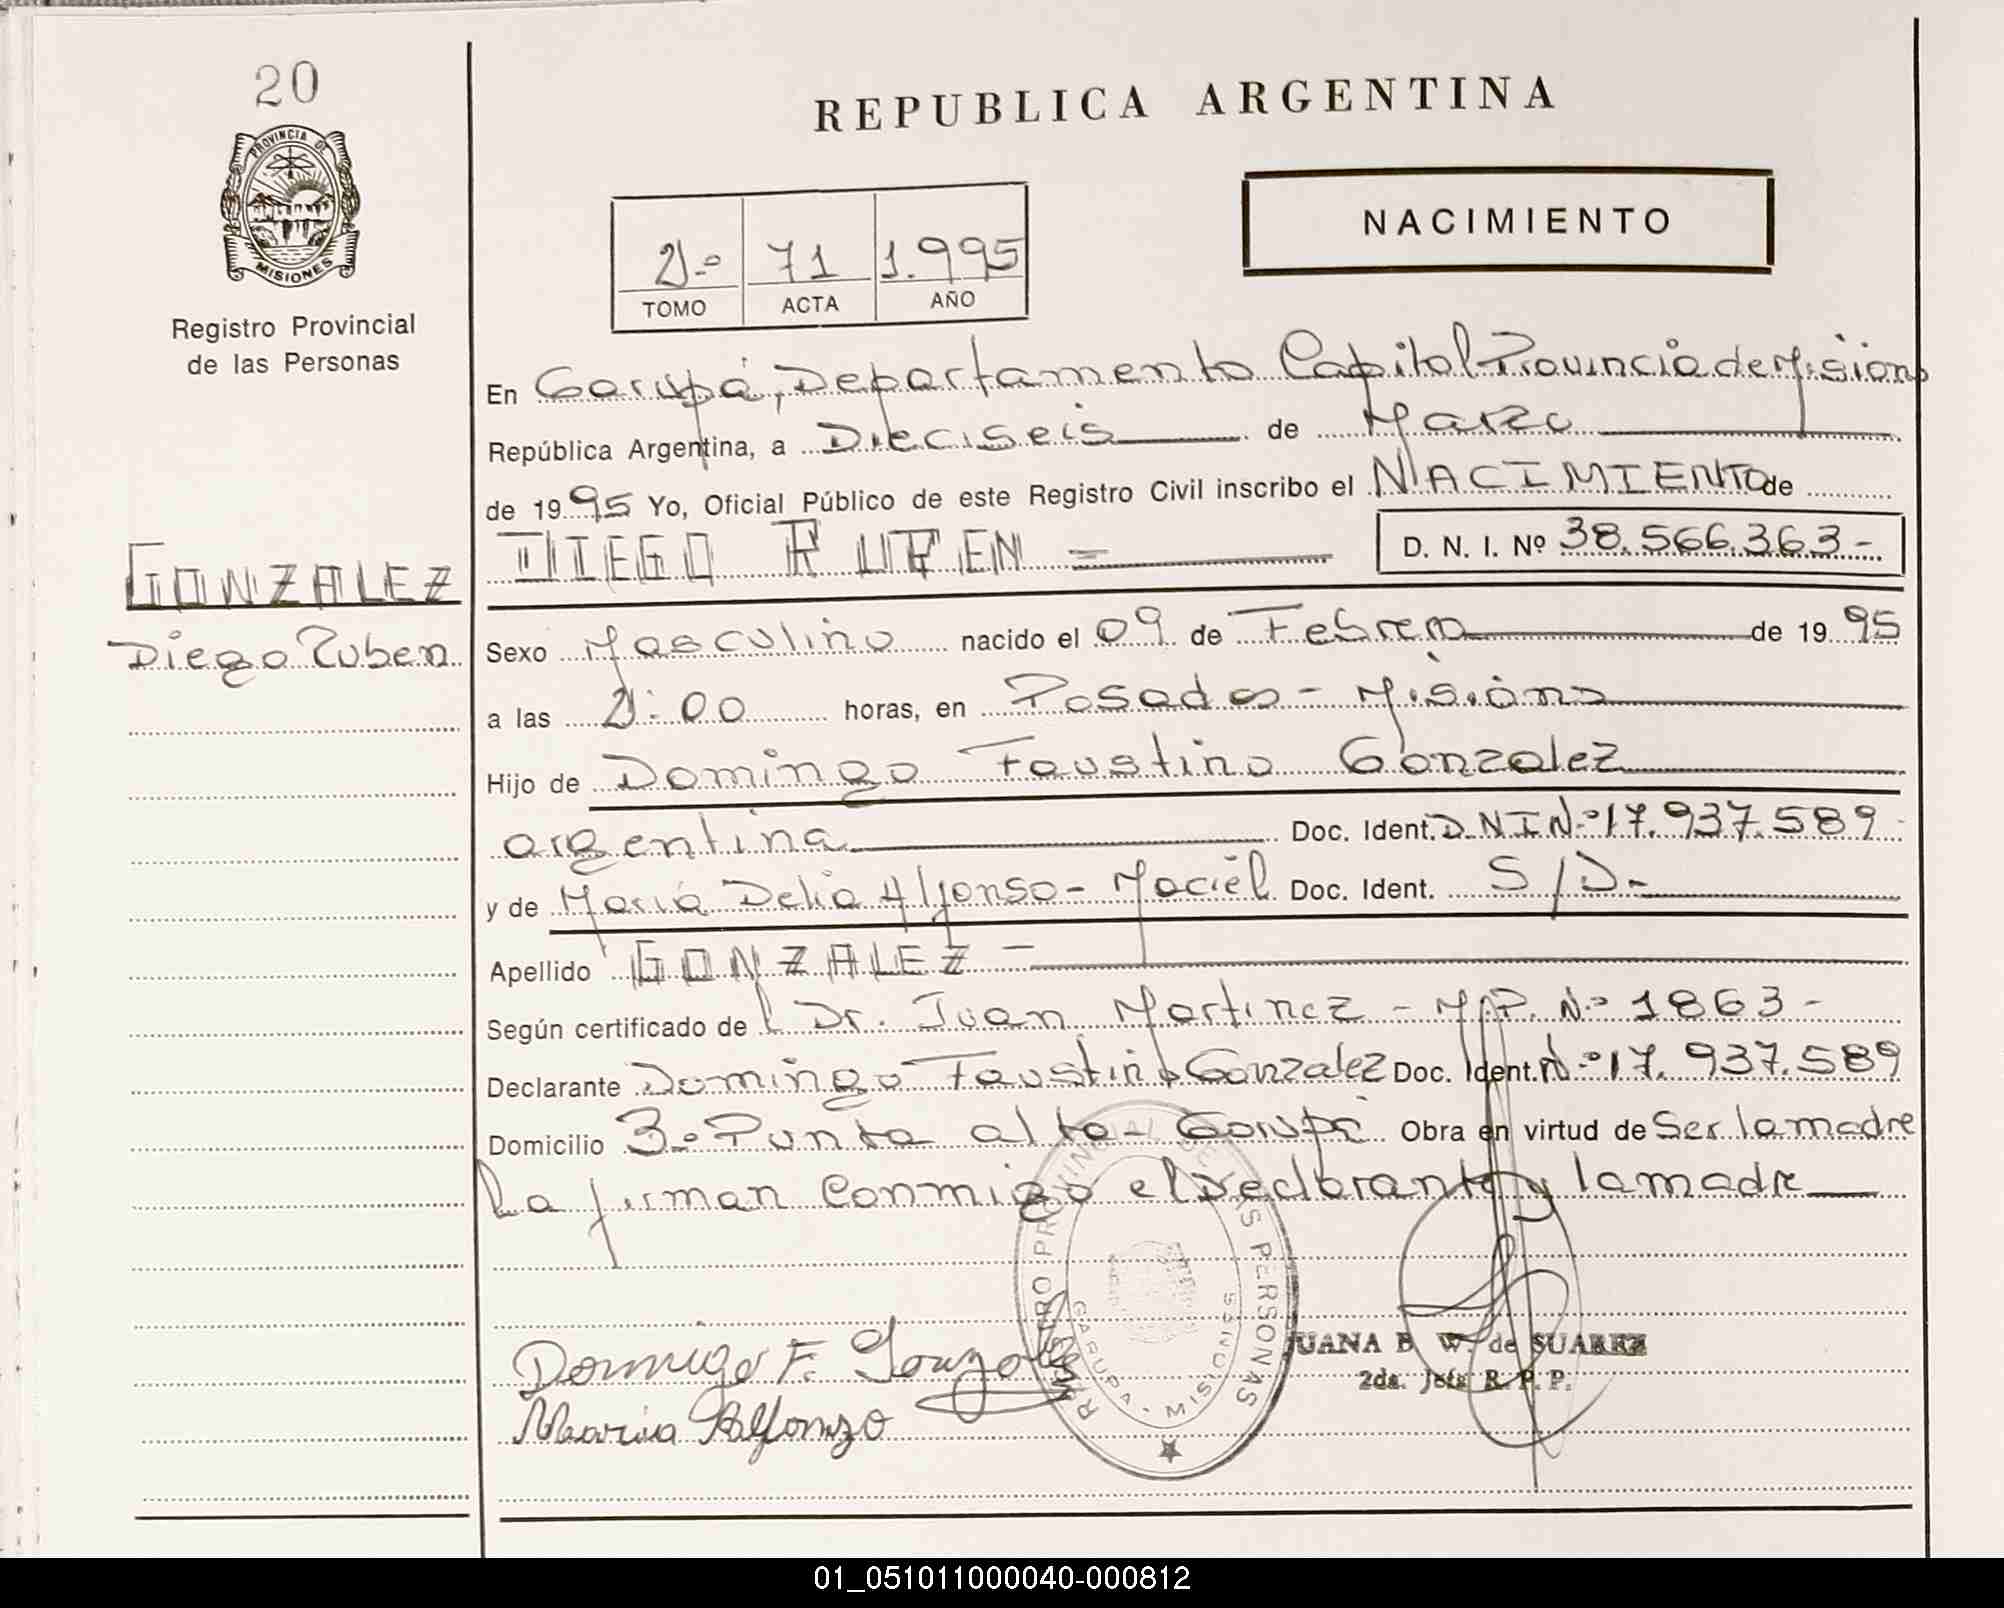 20
PROVINCIA DE
MISIONES
Registro Provincial
de las Personas
REPUBLICA ARGENTINA
NACIMIENTO
2-º 71 1.995
TOMO ACTA AÑO
En Garupá, Departamento Capital Provincia de Misiones
República Argentina, a Dieciseis de Marzo
de 1995 Yo, Oficial Público de este Registro Civil inscribo el NACIMIENTO de
DIEGO RUBEN = D. N. I. Nº 38.566.363-
GONZALEZ
Diego Ruben
Sexo Masculino nacido el 09 de Febrero de 1995
a las 2:00 horas, en Posadas - Misiones
Hijo de Domingo Faustino Gonzalez
argentina Doc. Ident. DNI Nº 17.937.589
y de María Delia Alfonso - Maciel Doc. Ident. S/D-
Apellido GONZALEZ -
Según certificado del Dr. Juan Martinez - M.P. Nº 1863 -
Declarante Domingo Faustino Gonzalez Doc. Ident. Nº 17.937.589
Domicilio 3º Punta alta - Garupá Obra en virtud de Ser la madre
La firman Conmigo el Declarante y la madre
Domingo F. Gonzalez
Maria Alfonzo
REGISTRO PROVINCIAL DE LAS PERSONAS
GARUPA - MISIONES
JUANA B. W. de SUAREZ
2da. Jefa R. P. P.
01_051011000040-000812